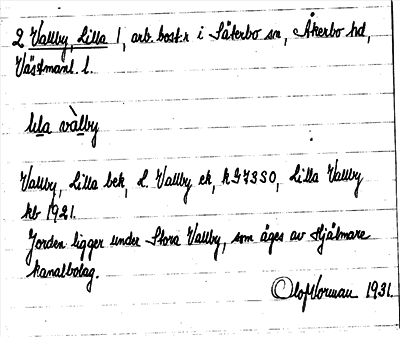 2 Vallby, Lilla 1, arb. bost:r i Säterbo sn, Åkerbo hd,
Västmanl. l.
lila vàlby
Vallby, Lilla bek, L. Vallby ek, kG7330, Lilla Vallby
kb 1921.
Jorden ligger under Stora Vallby, som äges av Hjälmare
kanalbolag.
Olof Norman 1931.